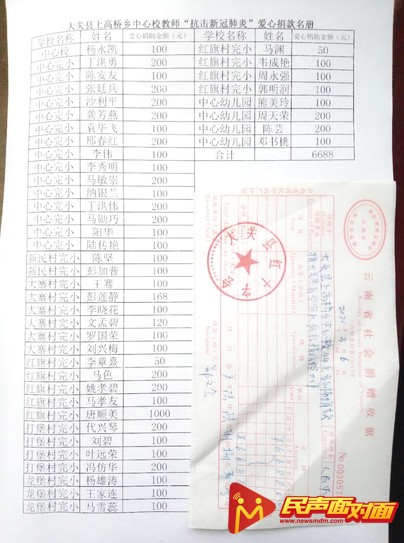 大关县上高桥乡中心校教师“抗击新冠肺炎”爱心捐款名册
学校名称 姓名 爱心捐助金额(元) 学校名称 姓名 爱心捐助金额(元)
中心校 杨永凯 100 红旗村完小 马渊 50
中心完小 丁洪勇 200 红旗村完小 韦成艳 100
中心完小 陈安友 100 红旗村完小 周永强 100
中心完小 张廷兵 200 红旗村完小 郭明润 100
中心完小 沙利平 200 中心幼儿园 熊美玲 100
中心完小 龚芳燕 200 中心幼儿园 周天荣 200
中心完小 袁华飞 100 中心幼儿园 陈芸 200
中心完小 邢春红 200 中心幼儿园 邓书桃 100
中心完小 李伟 100 合计 6688
中心完小 李秀明 100
中心完小 马敏崇 200
中心完小 纳银兰 100
中心完小 丁洪伟 200
中心完小 马勋巧 200
中心完小 阳华 100
中心完小 陆传艳 100
新民村完小 陈坚 100
新民村完小 彭加普 100
大寨村完小 王骞 100
大寨村完小 彭莲静 168
大寨村完小 李晓花 100
大寨村完小 文孟碧 120
大寨村完小 罗国荣 100
大寨村完小 刘兴梅 100
红旗村完小 李章熹 50
红旗村完小 马色 200
红旗村完小 姚孝碧 200
红旗村完小 马孝友 100
红旗村完小 唐顺美 1000
打堡村完小 代兴琴 200
打堡村完小 刘碧 100
打堡村完小 叶远荣 100
打堡村完小 冯仿华 200
龙堡村完小 杨雄涛 100
龙堡村完小 王家连 100
龙堡村完小 马雪蕊 100
云南省社会捐赠收据
大关县红十字会
民声面对面
www.newsmdm.com